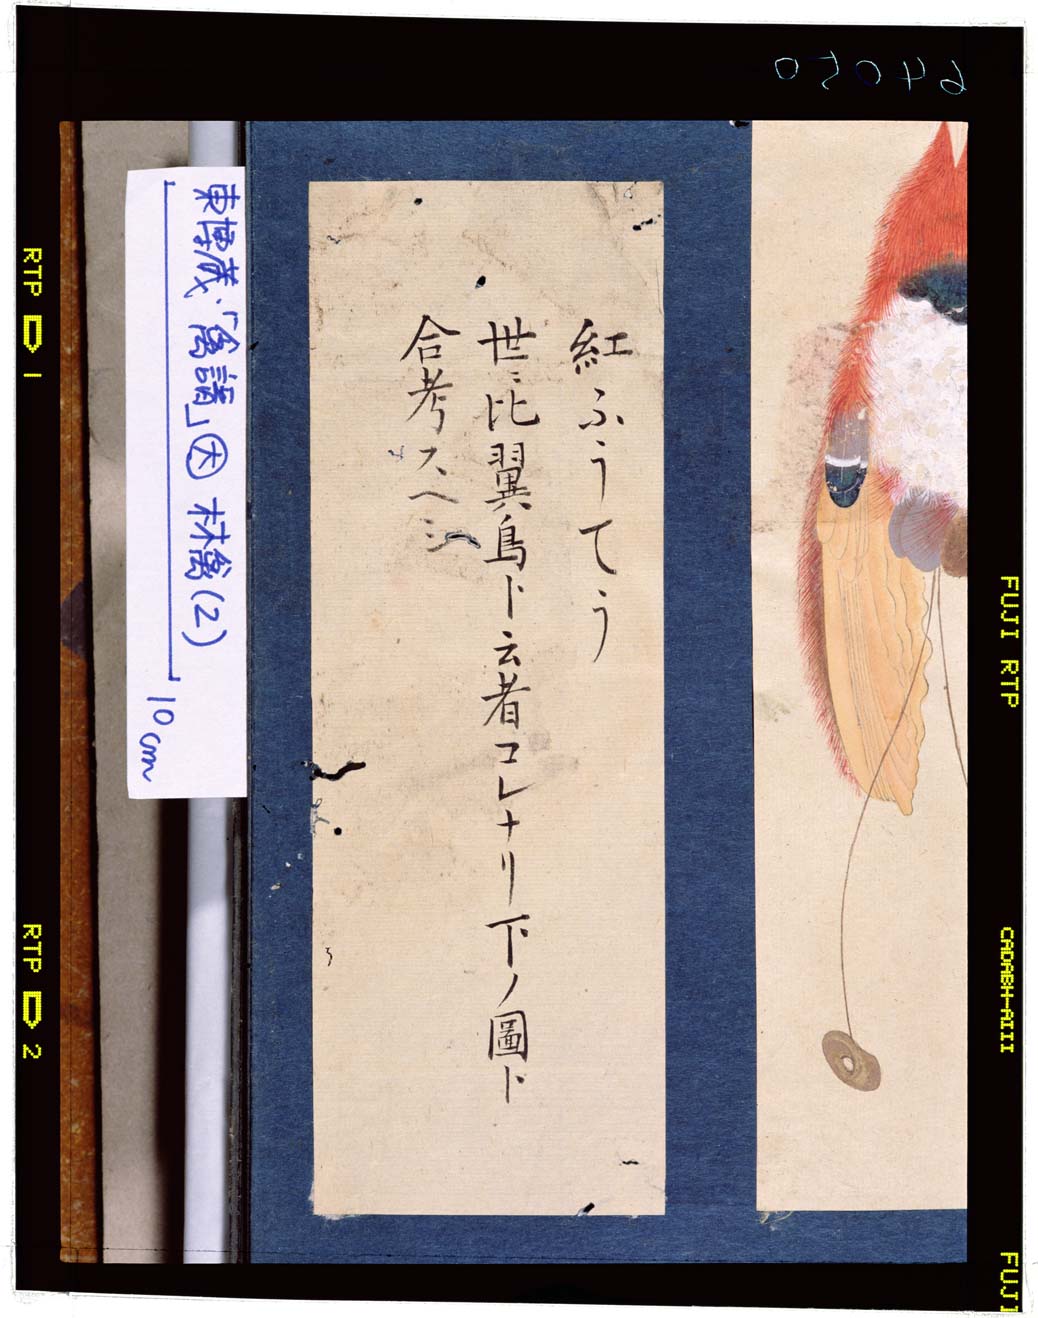 紅ふうてう
世ニ比翼鳥ト云者コレナリ下ノ圖ト
合考スヘシ
東博蔵「禽譜」因 林禽(2)
10cm
RTP 1
RTP 2
FUJI RTP
CADABH-AIII
FUJI